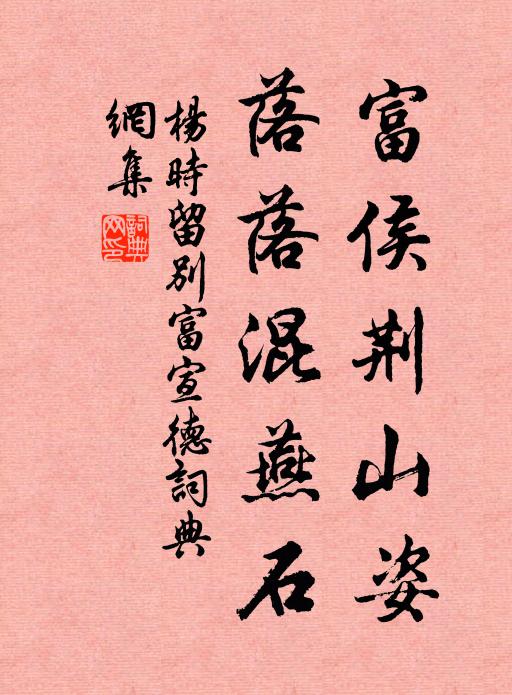 富侯荆山姿
落落混燕石
楊時留别富宣德詞典
網集
詞典网印